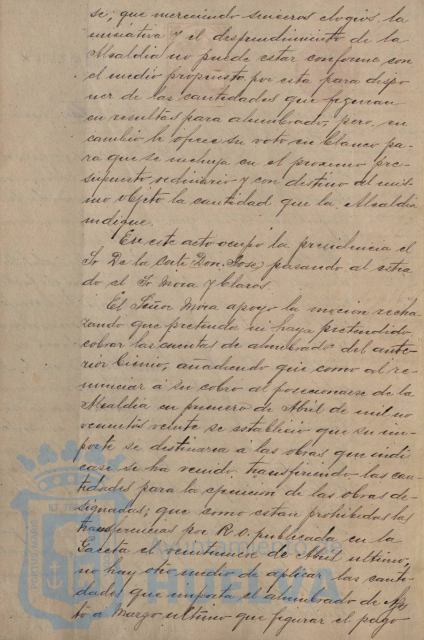 se, que mereciendo sinceros elogios la
iniciativa y el desprendimiento de la
Alcaldia no puede estar conforme con
el medio propuesto por esta para dispo
ner de las cantidades que figuran
en resultas para alumbrado, pero, en
cambio le ofrece su voto en blanco pa-
ra que se incluya en el proximo pre-
supuesto ordinario y con destino al mis-
mo objeto la cantidad que la Alcaldia
indique.
En este acto ocupó la presidencia el
Sr De la Corte Don Jose, pasando al estra-
do el Sr Mora y Claros.
El Señor Mora apoyó la moción recha-
zando que pretenda ni haya pretendido
cobrar las cuentas de alumbrado del ante-
rior bienio, añadiendo que como al re-
nunciar á su cobro al posesionarse de la
Alcaldia en primero de Abril de mil no
vecientos veinte se estableció que su im-
porte se destinaria á las obras que indi
case se ha venido transfiriendo las can-
tidades para la ejecución de las obras de-
signadas; que como estan prohibidas las
transferencias por R.O. publicada en la
Gaceta el veintinueve de Abril ultimo,
no hay otro medio de aplicar las canti-
dades que importa el alumbrado de
á Marzo ultimo que figurar el pago
HUELVA